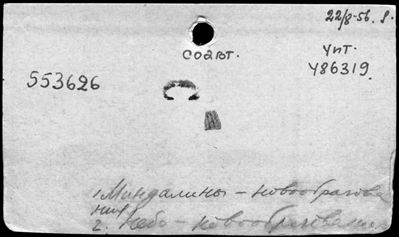 22/8-56.
соавт.
упт.
553626
486319.
1. Миндалины - новообразова
ния
2. Небо - новообразования